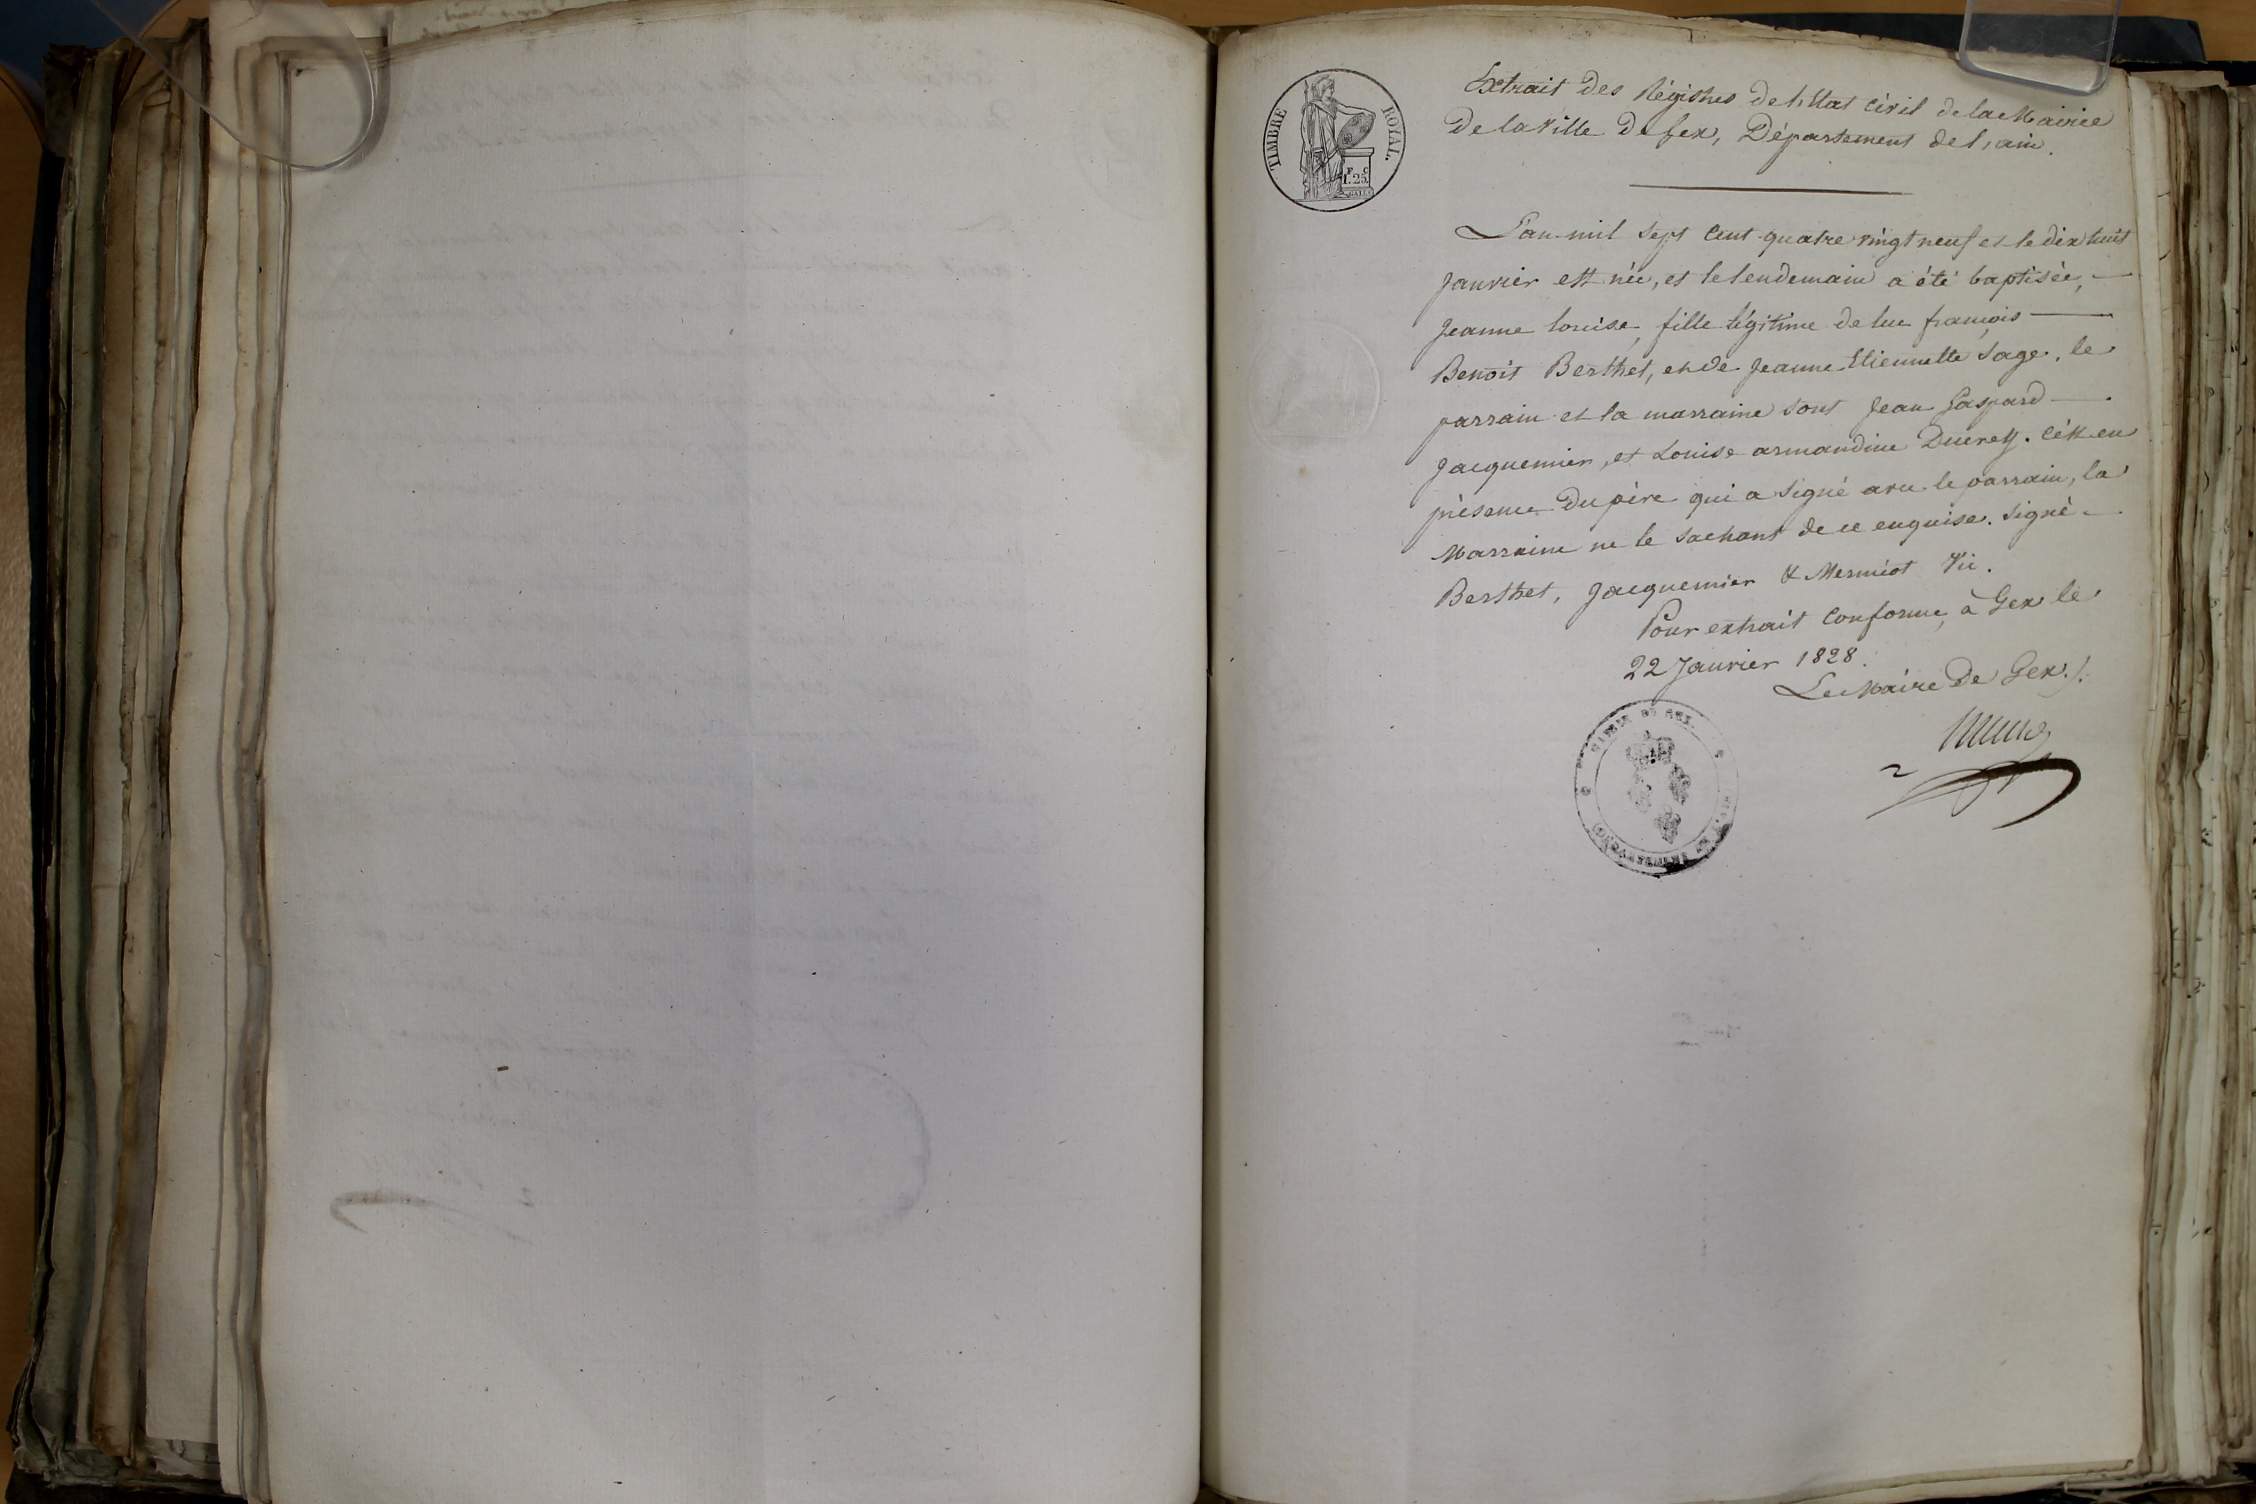 TIMBRE ROYAL.
F. C
1.25.
Extrait Des Régistres de l'Etat Civil de la Mairie
De la Ville De Gex, Département de l'ain.
L'an mil sept cent quatre vingt neuf et le dix huit
Janvier est née, et le lendemain a été baptisée, —
Jeanne Louise, fille légitime de luc françois —
Benoit Berthet, et de Jeanne Etiennette Sage, le
parrain et la marraine sont Jean Gaspard —
Jacquemier, et Louise armandine Ducret. C'est en
présence Du père qui a signé avec le parrain, la
Marraine ne le sachant de ce enquise. signé —
Berthet, Jacquemier & Mermiot Vic.
Pour extrait conforme, à Gex le
22 Janvier 1828.
Le Maire De Gex.
MAIRIE DE GEX.
DÉPARTEMENT DE L'AIN